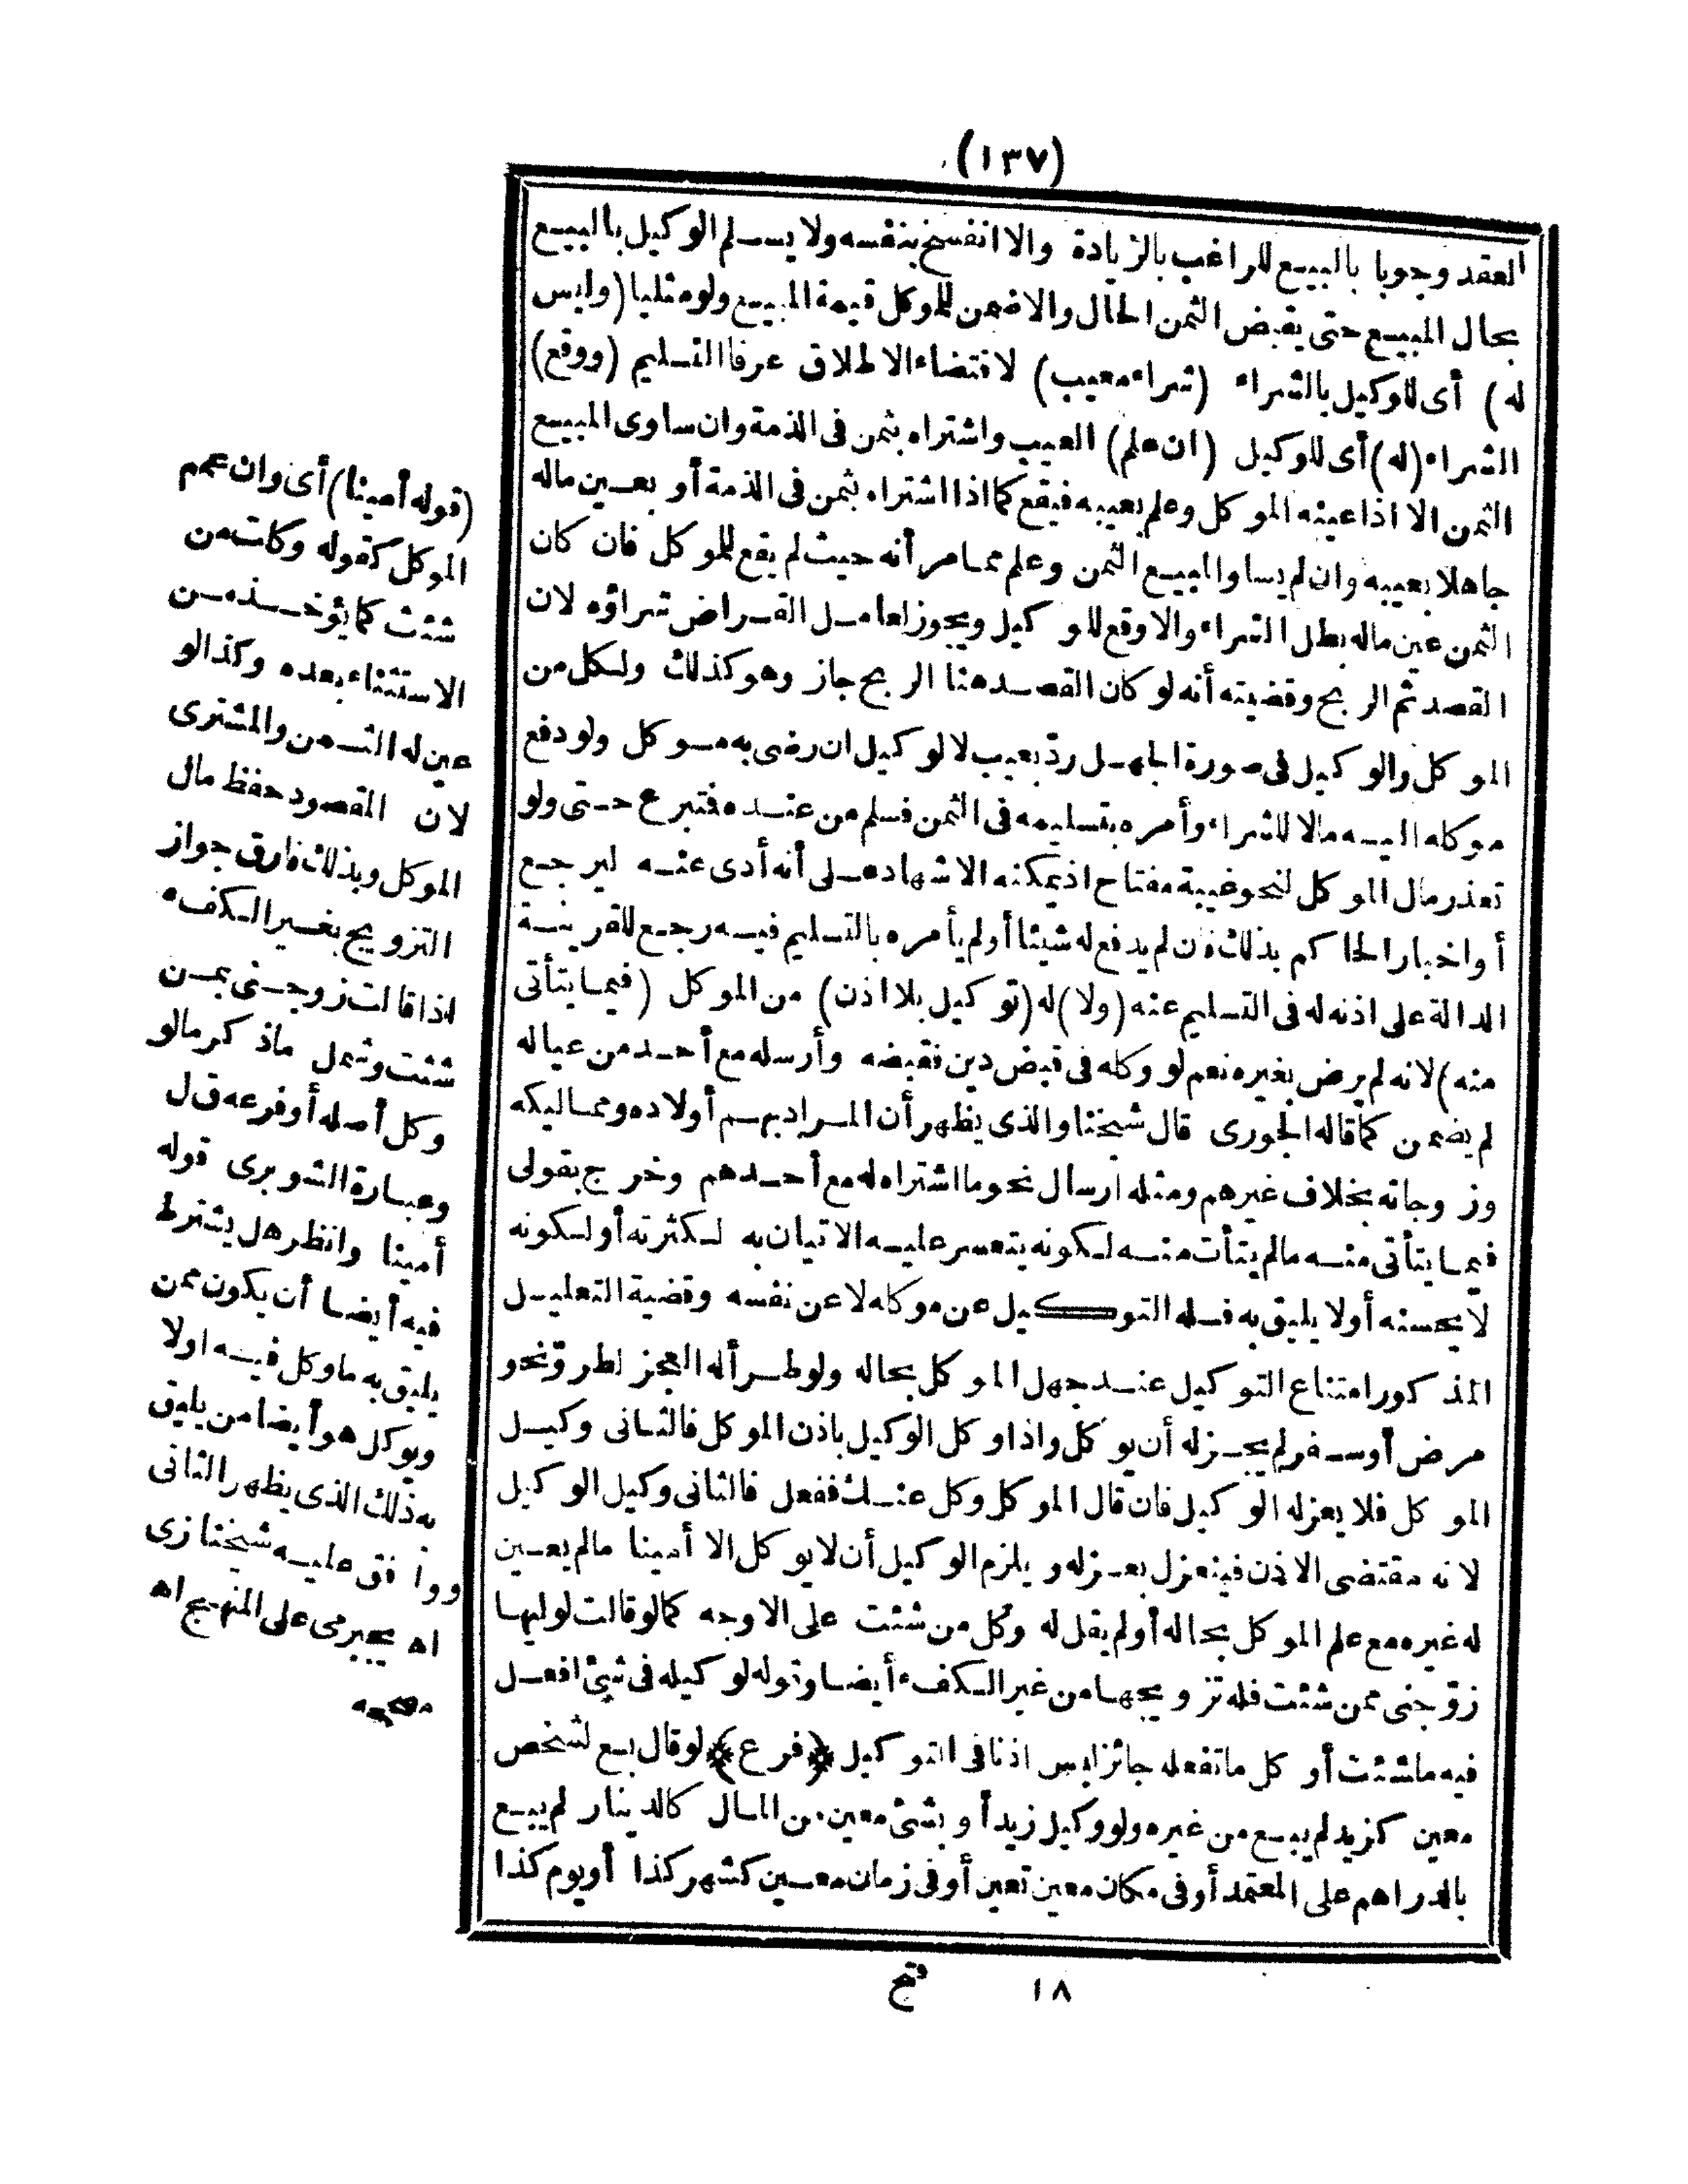 (١٣٧)
العقد وجوبا بالبيع للراغب بالزيادة والا انفسخ بنفسه ولا يسلم الوكيل بالبيع
بحال المبيع حتى يقبض الثمن الحال والاضمن للموكل قيمة المبيع ولو مثليا (وليس
له) أى للوكيل بالشراء (شراء معيب) لاقتضاء الاطلاق عرفا التسليم (ووقع)
الشراء (له) أى للوكيل (ان علم) العيب واشتراه بثمن فى الذمة وان ساوى المبيع
الثمن الا اذا عينه الموكل وعلم بعيبه فيقع كما اذا اشتراه بثمن فى الذمة أو بعين ماله
جاهلا بعيبه وان لم يساو المبيع الثمن وعلم مما مر أنه حيث لم يقع للموكل فان كان
الثمن عين ماله بطل الشراء والا وقع للوكيل ويجوز لعامل القراض شراؤه لان
القصد ثم الربح وقضيته أنه لو كان القصد هنا الربح جاز وهو كذلك ولكل من
الموكل والوكيل فى صورة الجهل ردّ بعيب لا لوكيل ان رضى به موكل ولو دفع
موكله اليه مالا للشراء وأمره بتسليمه فى الثمن فسلم من عنده فتبرع حتى ولو
تعذر مال الموكل لنحو غيبة مفتاح اذ يمكنه الاشهاد على أنه أدى عنه ليرجع
أو اخبار الحاكم بذلك فان لم يدفع له شيئا أو لم يأمره بالتسليم فيه رجع للقرينة
الدالة على اذنه له فى التسليم عنه (ولا) له (توكيل بلا اذن) من الموكل (فيما يتأتى
منه) لانه لم يرض بغيره نعم لو وكله فى قبض دين فقبضه وأرسله مع أحد من عياله
لم يضمن كما قاله الجورى قال شيخنا والذى يظهر أن المراد بهم أولاده ومماليكه
وزوجاته بخلاف غيرهم ومثله ارسال نحو ما اشتراه له مع أحدهم وخرج بقولى
فيما يتأتى منه مالم يتأت منه لكونه يتعسر عليه الاتيان به لكثرته أو لكونه
لا يحسنه أو لا يليق به فله التوكيل عن موكله لا عن نفسه وقضية التعليل
المذكور امتناع التوكيل عند جهل الموكل بحاله ولو طرأ له العجز لطروّ نحو
مرض أو سفر لم يجز له أن يوكل واذا وكل الوكيل باذن الموكل فالثانى وكيل
الموكل فلا يعزله الوكيل فان قال الموكل وكل عنك ففعل فالثانى وكيل الوكيل
لانه مقتضى الاذن فينعزل بعزله ويلزم الوكيل أن لا يوكل الا أمينا مالم يعين
له غيره مع علم الموكل بحاله أو لم يقل له وكل من شئت على الاوجه كما لو قالت لوليها
زوّجنى ممن شئت فله تزويجها من غير الكفء أيضا وقوله لوكيله فى شئ افعل
فيه ما شئت أو كل ما تفعله جائز ليس اذنا فى التوكيل ﴿فرع﴾ لو قال بع لشخص
معين كزيد لم يبع من غيره ولو وكيل زيد أو بشئ معين من المال كالدينار لم يبع
بالدراهم على المعتمد أو فى مكان معين تعين أو فى زمان معين كشهر كذا أو يوم كذا
١٨ فتح
(قوله أمينا) أى وان عمم
الموكل كقوله وكلت من
شئت كما يؤخذ من
الاستثناء بعده وكذا لو
عين له الثمن والمشترى
لان المقصود حفظ مال
الموكل وبذلك فارق جواز
التزويج بغير الكفء
اذا قالت زوجنى بمن
شئت وشمل ماذكر مالو
وكل أصله أو فرعه ق ل
وعبارة الشوبرى قوله
أمينا وانظر هل يشترط
فيه أيضا أن يكون ممن
يليق به ما وكل فيه اولا
ويوكل هو أيضا من يليق
به ذلك الذى يظهر الثانى
ووافق عليه شيخنا زى
اه بجيرمى على المنهج اه